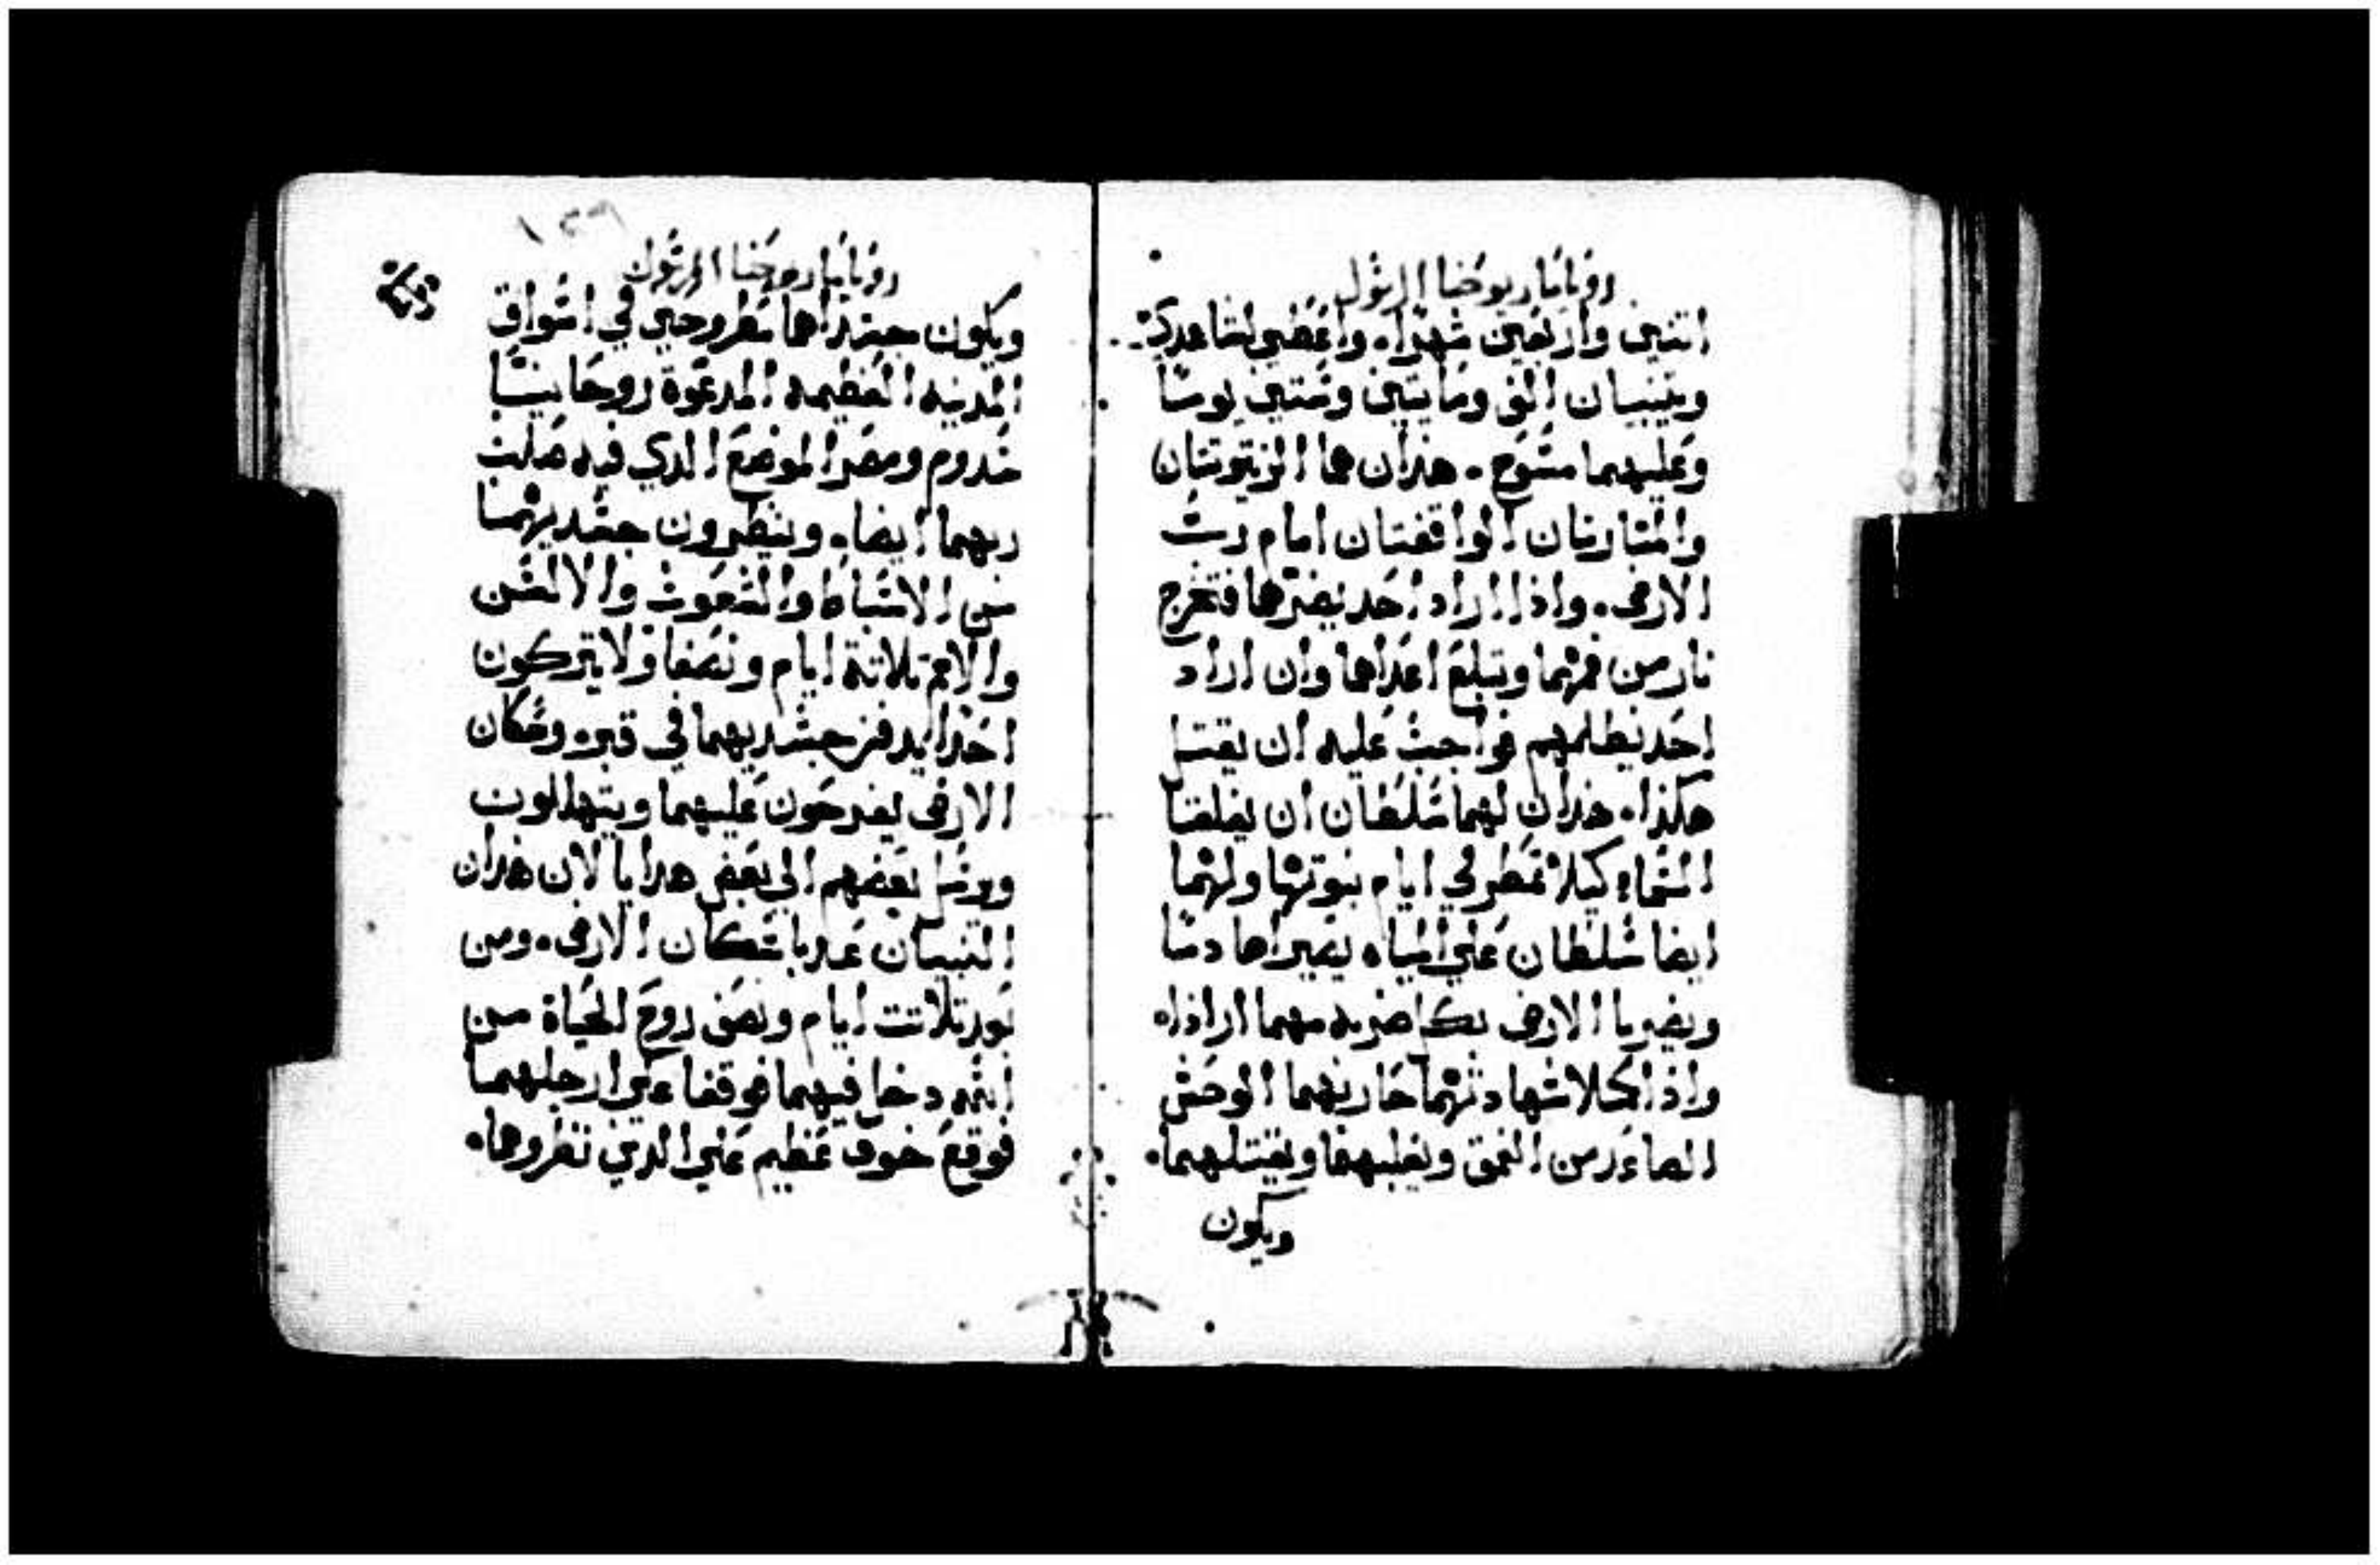 رؤيا مار يوحنا الرسول
اتنين واربعين شهرا. واعطي لشاعدي
ويتنبيان الف ومايتين وستين يوما
وعليهما مسوح. هذان هما الزيتونتان
والمنارتان الواقفتان امام رب
الارض. واذا اراد احد يضرهما فتخرج
نار من فمهما وتبلع اعداهما وان اراد
احد يظلمهم فواجب عليه ان يقتل
هكذا. هذان لهما سلطان ان يغلقا
السماء كيلا تمطر في ايام نبوتهما ولهما
ايضا سلطان علي المياه يصيراها دما
ويضربا الارض بكل ضربه مهما ارادا.
واذا كملا شهادتهما حاربهما الوحش
الصاعد من العمق ويغلبهما ويقتلهما.
ويكون
رؤيا مار يوحنا الرسول
ويكون جسداهما مطروحين في اسواق
المدينه العظيمه المدعوة روحانيا
سدوم ومصر الموضع الدي فيه صلب
ربهما ايضا. وينظرون جسديهما
من الاسباط والشعوب والالسن
والامم تلاتة ايام ونصفا ولا يتركون
احدا يدفن جسديهما في قبر. وسكان
الارض يفرحون عليهما ويتهللون
ويرسل بعضهم الي بعض هدايا لان هذان
النبيان عدبا سكان الارض. ومن
بعد تلاتت ايام ونصف روح الحياة من
الله دخل فيهما فوقفا علي ارجلهما
فوقع خوف عظيم علي الدين نظروهما.